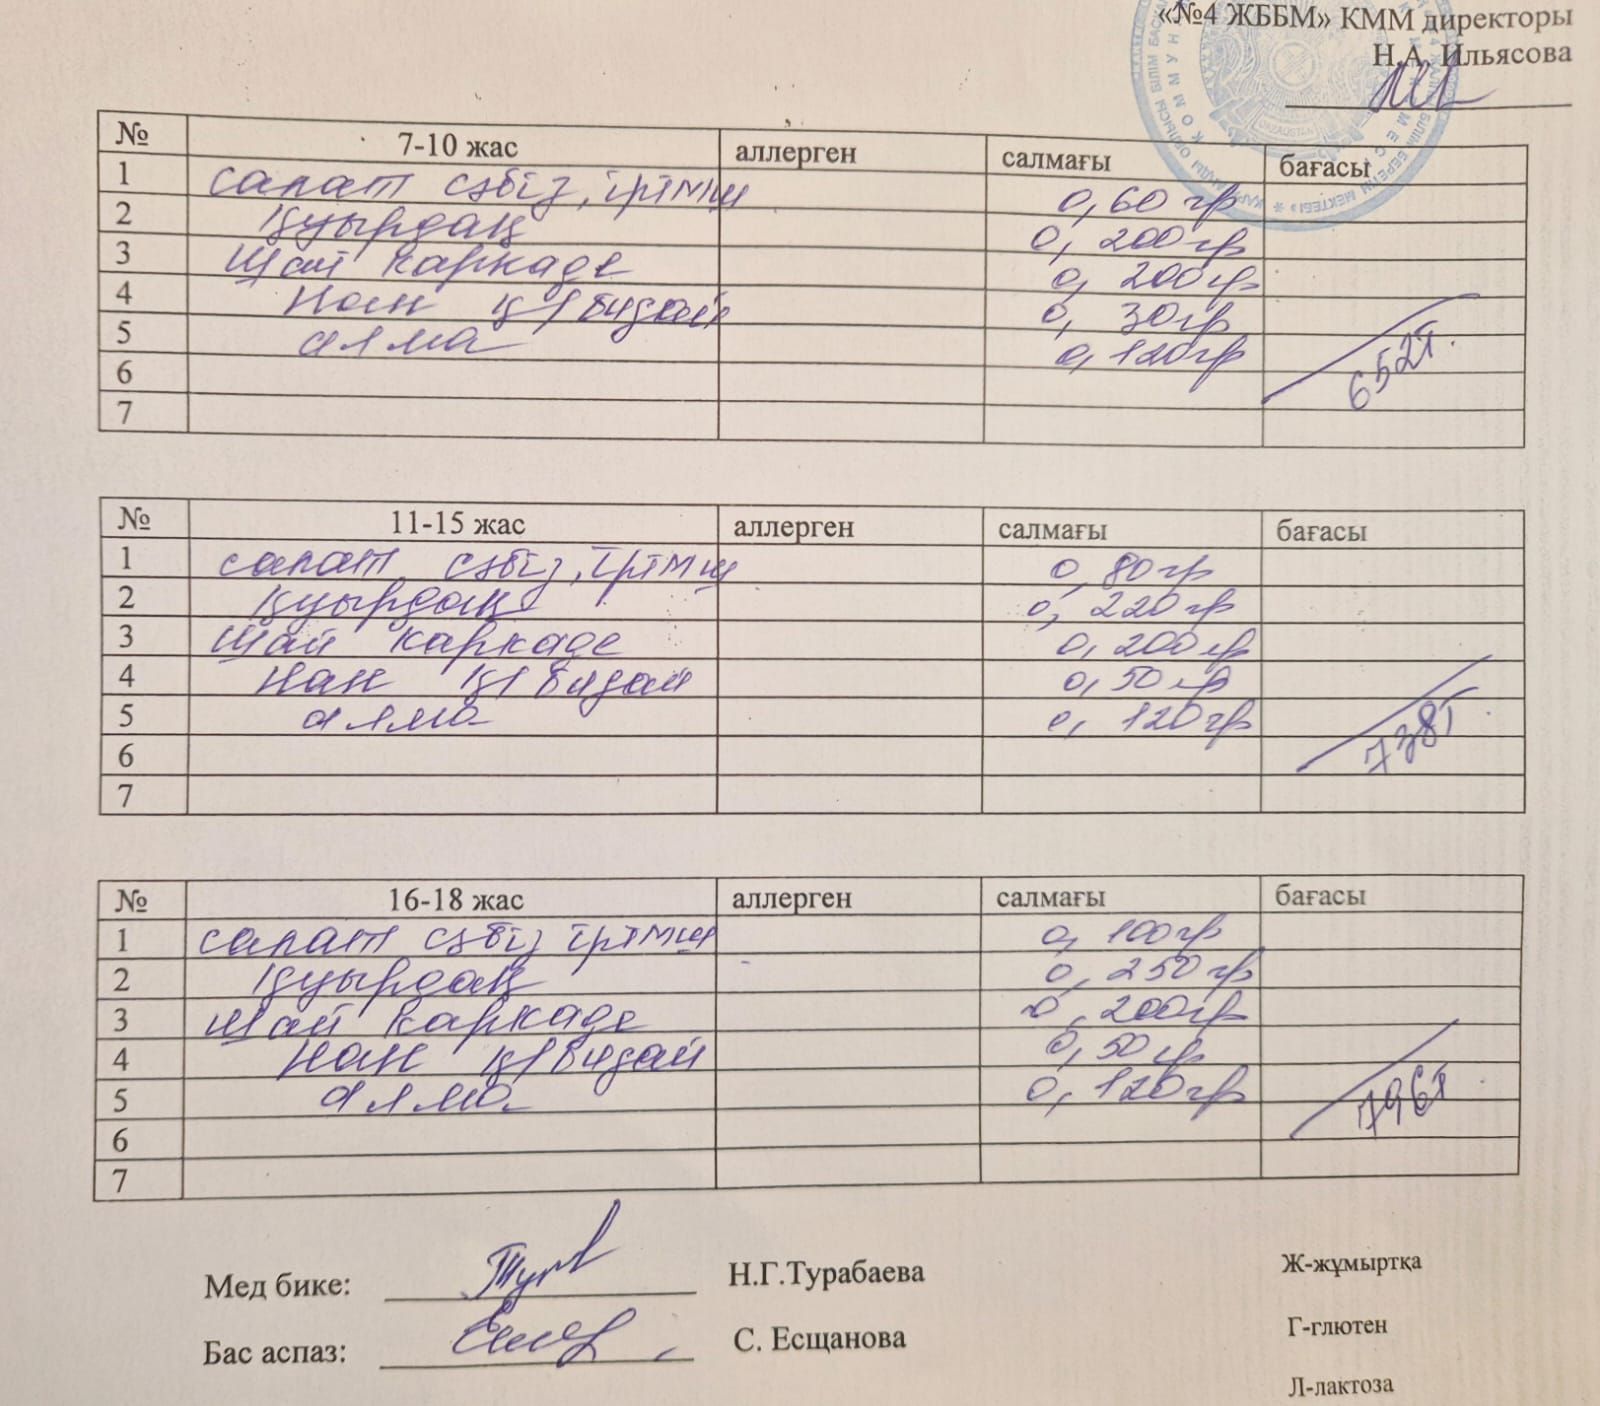 «№4 ЖББМ» КММ директоры
Н.А. Ильясова
№ 7-10 жас аллерген салмағы бағасы
1 салат сәбіз, ірімшік 0,60 гр
2 қуырдақ 0, 200гр
3 Шай каркаде 0, 200гр
4 Нан қ/бидай 0, 30гр
5 алма 0, 120гр 652т.
6
7
№ 11-15 жас аллерген салмағы бағасы
1 салат сәбіз, ірімш 0, 80гр
2 қуырдақ 0, 220гр
3 Шай каркаде 0, 200гр
4 Нан қ/бидай 0, 50гр
5 алма 0, 120гр 738т
6
7
№ 16-18 жас аллерген салмағы бағасы
1 салат сәбіз ірімш 0, 100гр
2 қуырдақ 0, 250гр
3 Шай каркаде 0, 200гр
4 Нан қ/бидай 0, 50гр
5 алма 0, 120гр 796т
6
7
Мед бике: Н.Г.Турабаева
Бас аспаз: С. Есщанова
Ж-жұмыртқа
Г-глютен
Л-лактоза